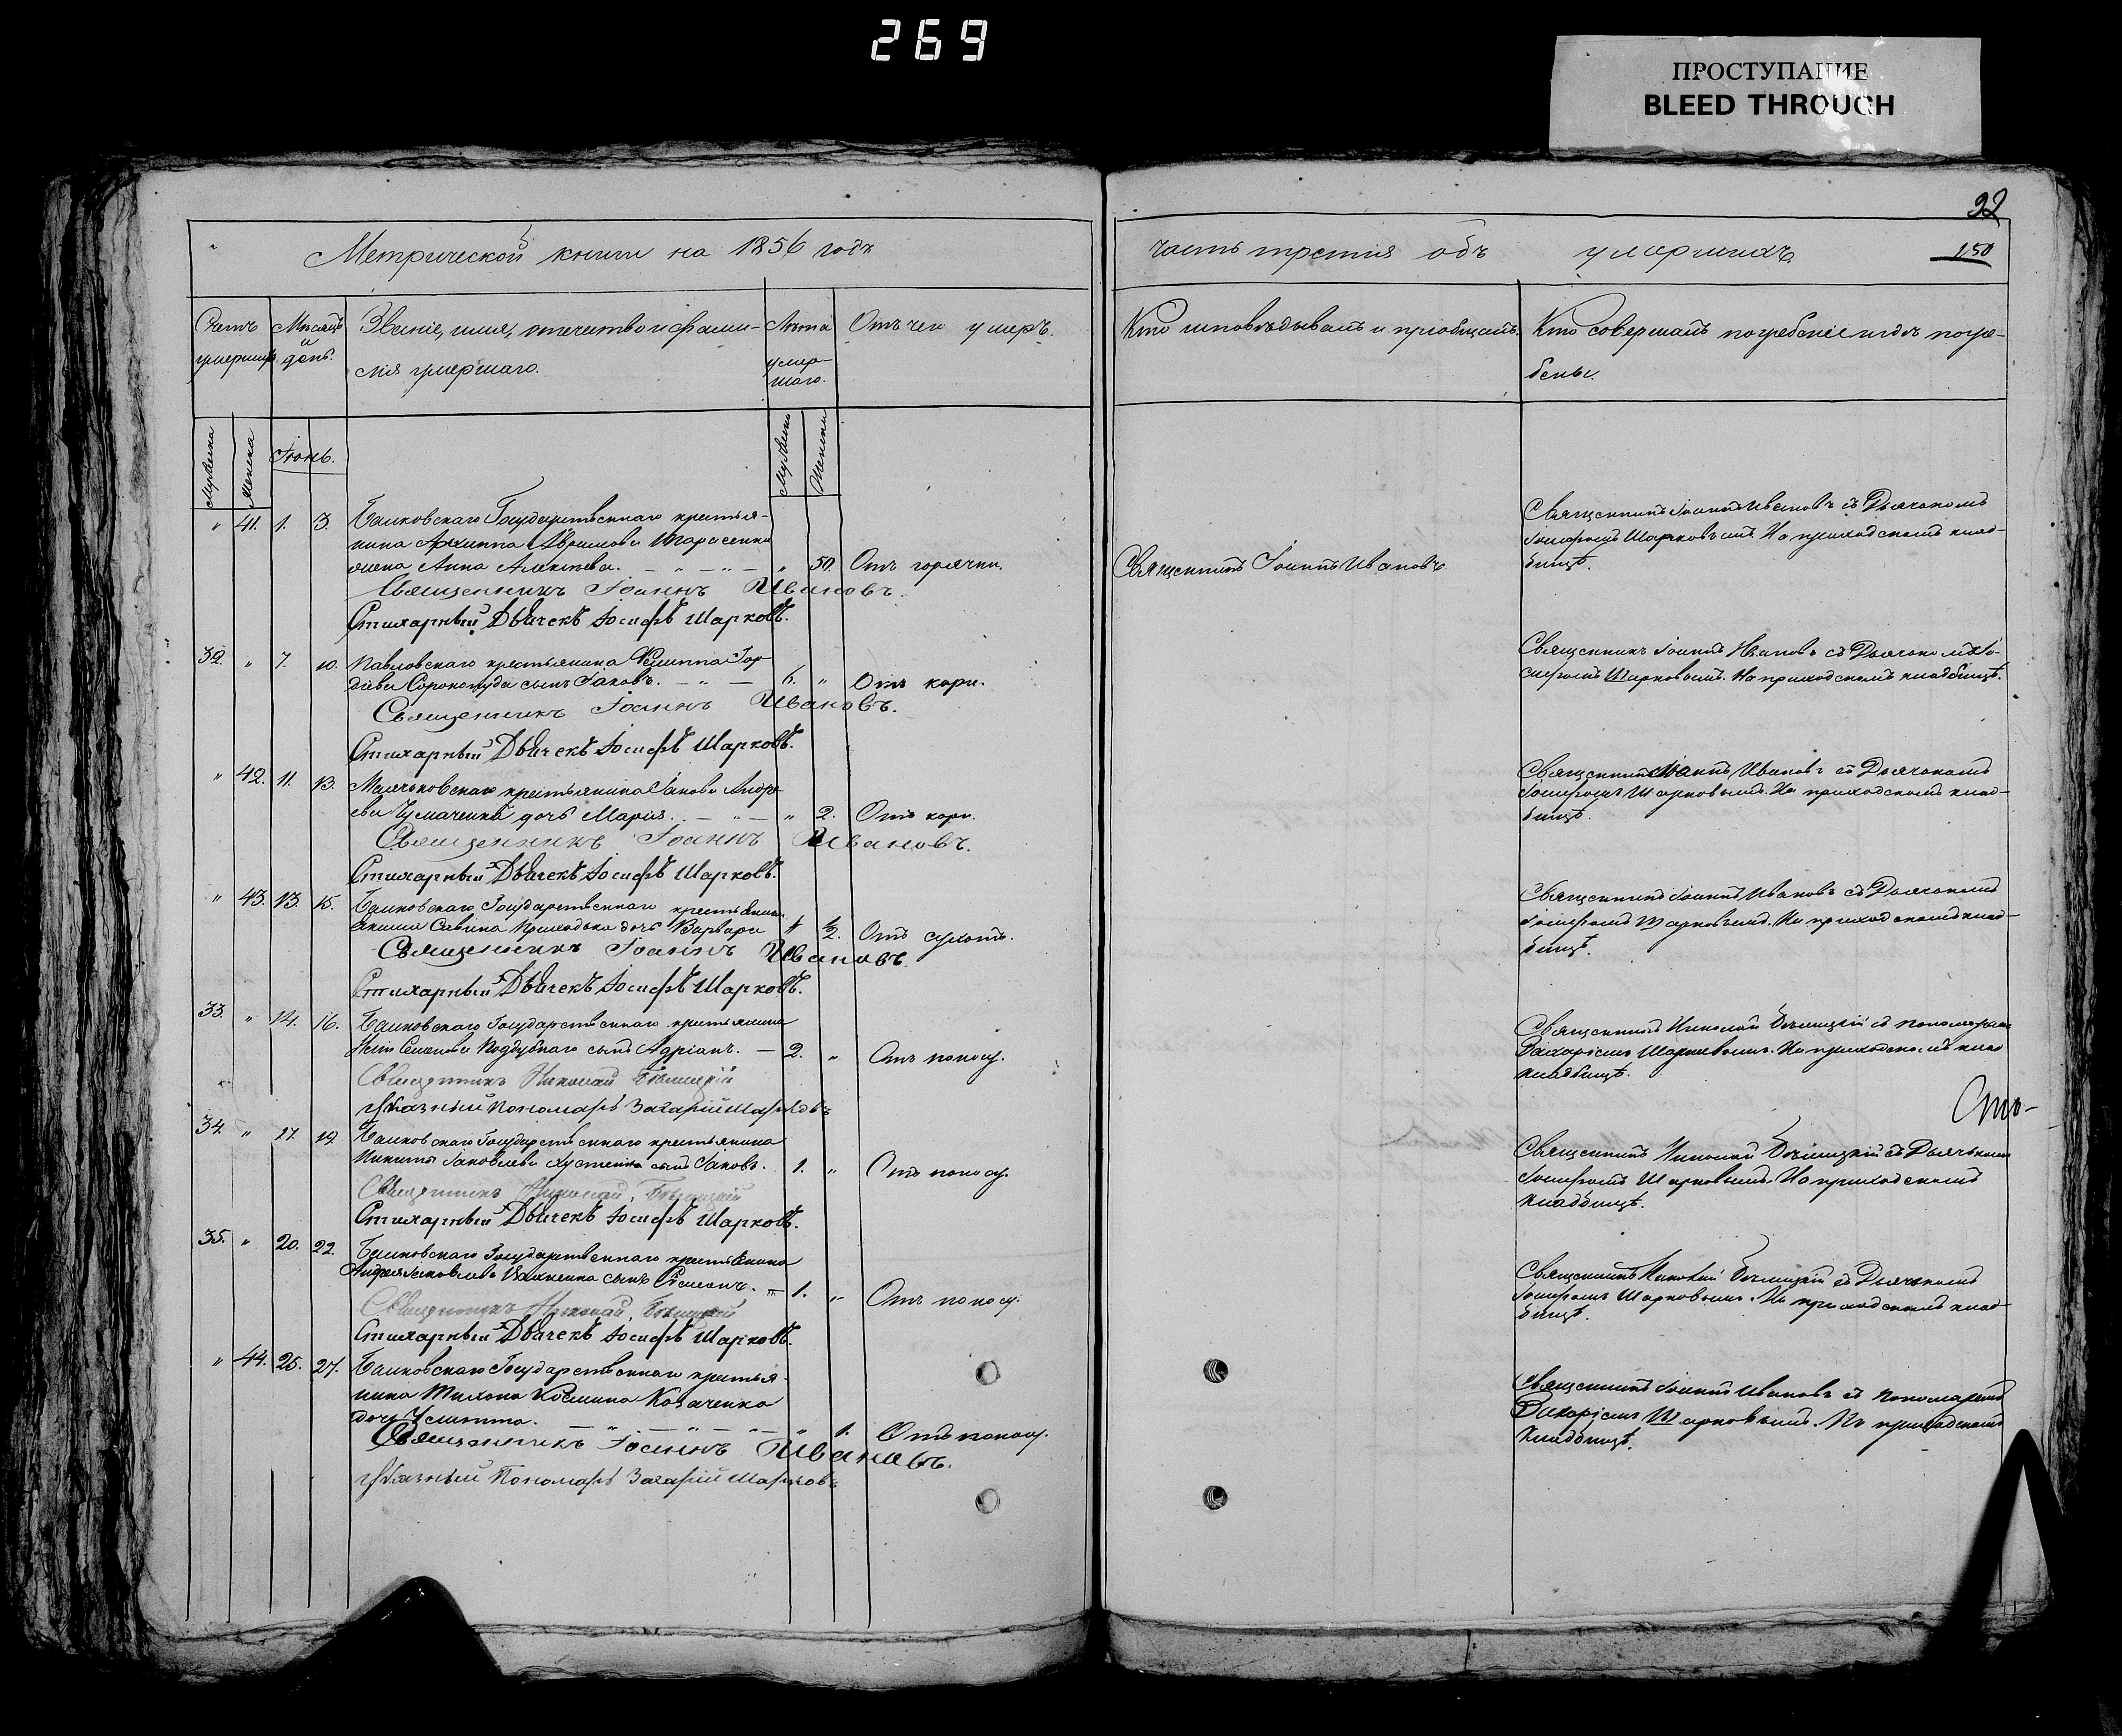 269
ПРОСТУПАНИЕ
BLEED THROUGH
22
Метрической книги на 1856 годъ
часть третия объ умершихъ
150
Счетъ умершихъ
Мѣсяцъ и день.
Званіе, имя, отечество и фами-
лія умершаго.
Лѣта умер-
шаго.
Отъ чего умеръ.
Кто исповѣдывалъ и пріобщалъ.
Кто совершалъ погребеніе и гдѣ погре-
бены.
Мужеска
Женска
Іюнь.
Мужеска
Женска
" 41. 1. 3. Государственнаго крестья-
нина Архиппа Тарасенка
жена Анна " 50. Отъ горячки.
Священникъ Іоаннъ Ивановъ.
Священникъ Іоаннъ Ивановъ съ Дьячкомъ
Іосифомъ Шарковымъ. На приходскомъ клад-
бищѣ.
Священникъ Іоаннъ Ивановъ.
Стихарный Дьячекъ Іосифъ Шарковъ.
32. " 7. 10. Павловскаго крестьянина Филиппа Гор-
дѣева сынъ Іаковъ. 6. " Отъ кори.
Священникъ Іоаннъ Ивановъ съ Дьячкомъ Іо-
сифомъ Шарковымъ. На приходскомъ кладбищѣ.
Священникъ Іоаннъ Ивановъ.
Стихарный Дьячекъ Іосифъ Шарковъ.
" 42. 11. 13. крестьянина Іакова Андре-
ева Чумаченка дочь Марія. " 2. Отъ кори.
Священникъ Іоаннъ Ивановъ съ Дьячкомъ
Іосифомъ Шарковымъ. На приходскомъ клад-
бищѣ.
Священникъ Іоаннъ Ивановъ.
Стихарный Дьячекъ Іосифъ Шарковъ.
" 43. 13. 15. Государственнаго крестьянина
Савина Приходька дочь Варвара " ½. Отъ сухотъ.
Священникъ Іоаннъ Ивановъ съ Дьячкомъ
Іосифомъ Шарковымъ. На приходскомъ клад-
бищѣ.
Священникъ Іоаннъ Ивановъ
Стихарный Дьячекъ Іосифъ Шарковъ.
33. " 14. 16. Государственнаго крестьянина
Семенова Поддубнаго сынъ Адріанъ. 2. " Отъ поносу.
Священникъ Николай съ пономаремъ
Захаріемъ Шарковымъ. На приходскомъ клад
кладбищѣ.
Священникъ Николай
Указный Пономарь Захарій Шарковъ
Сто-
34. " 17. 19. Государственнаго крестьянина
Никиты Іаковлева сынъ Іаковъ. 1. " Отъ поносу.
Священникъ Николай съ Дьячкомъ
Іосифомъ Шарковымъ. На приходскомъ
кладбищѣ.
Священникъ Николай
Стихарный Дьячекъ Іосифъ Шарковъ.
35. " 20. 22. Государственнаго крестьянина
Андрея Іаковлева сынъ Симеонъ. 1. " Отъ поносу.
Священникъ Николай съ Дьячкомъ
Іосифомъ Шарковымъ. На приходскомъ клад-
бищѣ.
Священникъ Николай
Стихарный Дьячекъ Іосифъ Шарковъ.
" 44. 25. 27. Государственнаго крестья-
нина Тихона Козмина Козаченка
дочь " 1. Отъ поносу.
Священникъ Іоаннъ Ивановъ съ Пономаремъ
Захаріемъ Шарковымъ. На приходскомъ
кладбищѣ.
Священникъ Іоаннъ Ивановъ.
Указный Пономарь Захарій Шарковъ